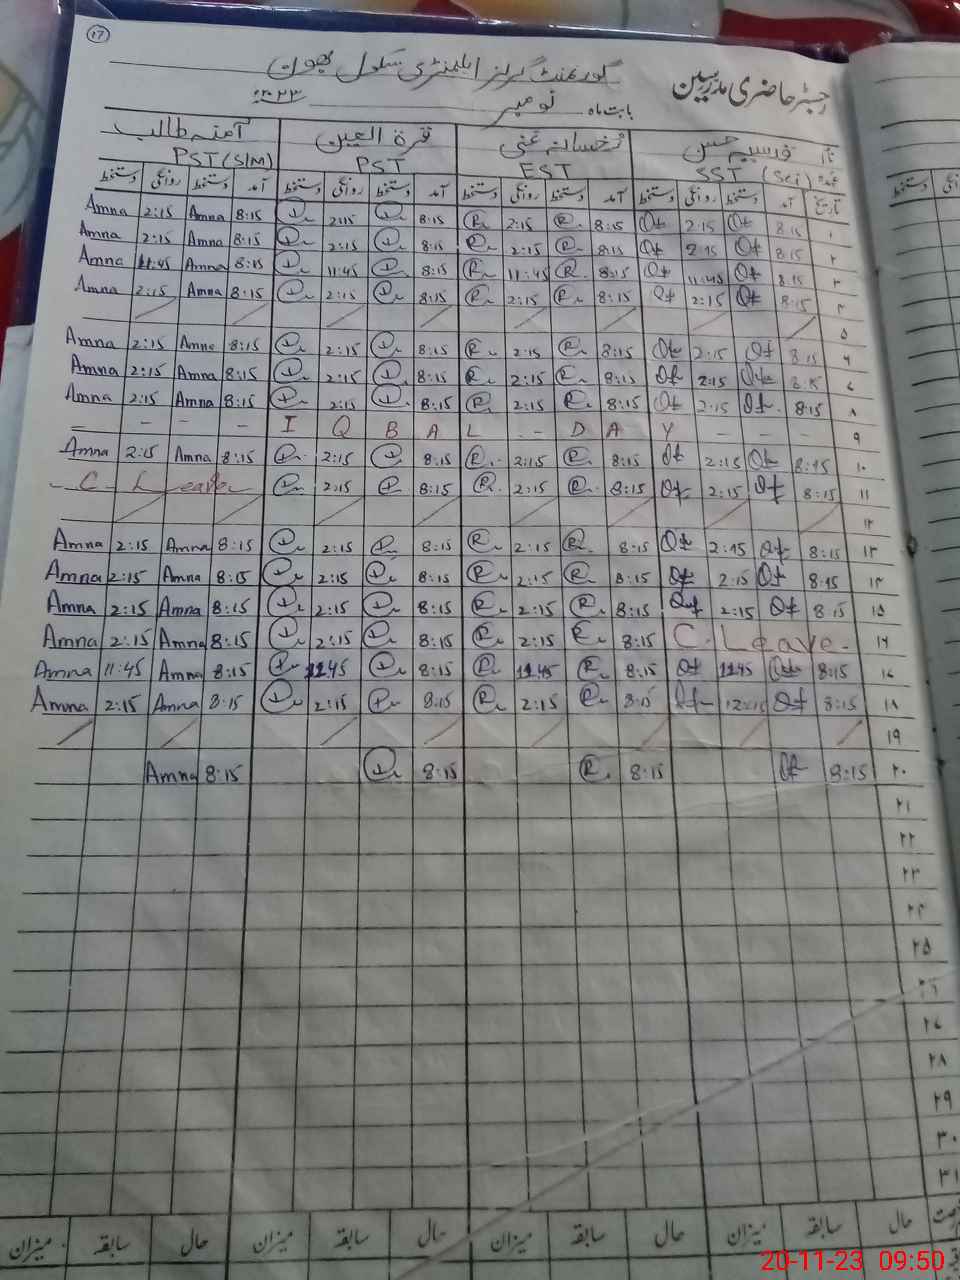 17
گورنمنٹ گرلز ایلیمنٹری سکول بھون
رجسٹر حاضری مدرسین
بابت ماہ نومبر ۲۰۲۳ء
نام حسن رُخسانہ غنی قرۃ العین آمنہ طالب
عہدہ SST (Sci) EST PST PST (S/M)
تاریخ آمد دستخط روانگی دستخط آمد دستخط روانگی دستخط آمد دستخط روانگی دستخط آمد دستخط روانگی دستخط
Amna 2:15 Amna 8:15 2:15 8:15 R 2:15 R 8:15 2:15 8:15 ۱
Amna 2:15 Amna 8:15 2:15 8:15 R 2:15 R 8:15 2:15 8:15 ۲
Amna 11:45 Amna 8:15 11:45 8:15 R 11:45 R 8:15 11:45 8:15 ۳
Amna 2:15 Amna 8:15 2:15 8:15 R 2:15 R 8:15 2:15 8:15 ۴
۵
Amna 2:15 Amna 8:15 2:15 8:15 R 2:15 R 8:15 2:15 8:15 ۶
Amna 2:15 Amna 8:15 2:15 8:15 R 2:15 R 8:15 2:15 8:15 ۷
Amna 2:15 Amna 8:15 2:15 8:15 R 2:15 R 8:15 2:15 8:15 ۸
= - - - I Q B A L - - D A Y - - - ۹
Amna 2:15 Amna 8:15 2:15 8:15 R 2:15 R 8:15 2:15 8:15 ۱۰
- C - Leave 2:15 8:15 R 2:15 R 8:15 2:15 8:15 ۱۱
۱۲
Amna 2:15 Amna 8:15 2:15 8:15 R 2:15 R 8:15 2:15 8:15 ۱۳
Amna 2:15 Amna 8:15 2:15 8:15 R 2:15 R 8:15 2:15 8:15 ۱۴
Amna 2:15 Amna 8:15 2:15 8:15 R 2:15 R 8:15 2:15 8:15 ۱۵
Amna 2:15 Amna 8:15 2:15 8:15 R 2:15 R 8:15 C. Leave - ۱۶
Amna 11:45 Amna 8:15 11:45 8:15 R 11:45 R 8:15 11:45 8:15 ۱۷
Amna 2:15 Amna 8:15 2:15 8:15 R 2:15 R 8:15 12:15 8:15 ۱۸
۱۹
Amna 8:15 8:15 R 8:15 8:15 ۲۰
۲۱
۲۲
۲۳
۲۴
۲۵
۲۶
۲۷
۲۸
۲۹
۳۰
۳۱
حال سابقہ میزان حال سابقہ میزان حال سابقہ میزان حال سابقہ میزان
20-11-23 09:50